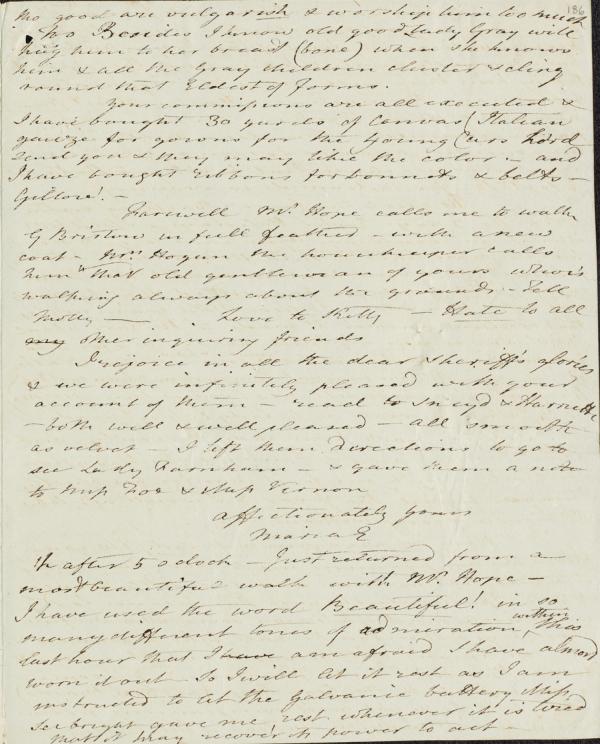 186
tho good are vulgarish & worship him too much
tho Besides I know old good Lady Gray will
hug him to her breast (bone) when she knows
him & all the Gray children cluster & cling
round that Eldest of forms.
Your commissions are all executed &
I have bought 30 yards of Canvas (Italian
gauze for gowns for the young
send you & they may like the color – and
I have bought ribbons for bonnets & belts –
Galore! –
Farewell Mr Hope calls me to walk
G Bristow in full feather – with a new
coat – Mrs Hogan the housekeeper calls
him "that old gentleman of yours who is
walking always about the grounds – Tell
Molly — Love to Kitty – Hate to all
my other inquiring friends
I rejoice in all the dear Sheriff's glories
& we were infinitely pleased with your
account of them – read to Sneyd & Harriette
– both well & well pleased – all smooth
as velvet – I left them directions to go to
see Lady Farnham – & gave them a note
to Miss Fox & Miss Vernon
affectionately yours
Maria E
after 5 o clock – Just returned from a
most beautiful walk with Mr Hope –
I have used the word Beautiful! in so
many different tones of admiration, within this
last hour that I have am afraid I have almost
worn it out So I will let it rest as I am
instructed to let the galvanic battery Miss
Sebright gave me, rest whenever it is tired
that it may recover its power to act –